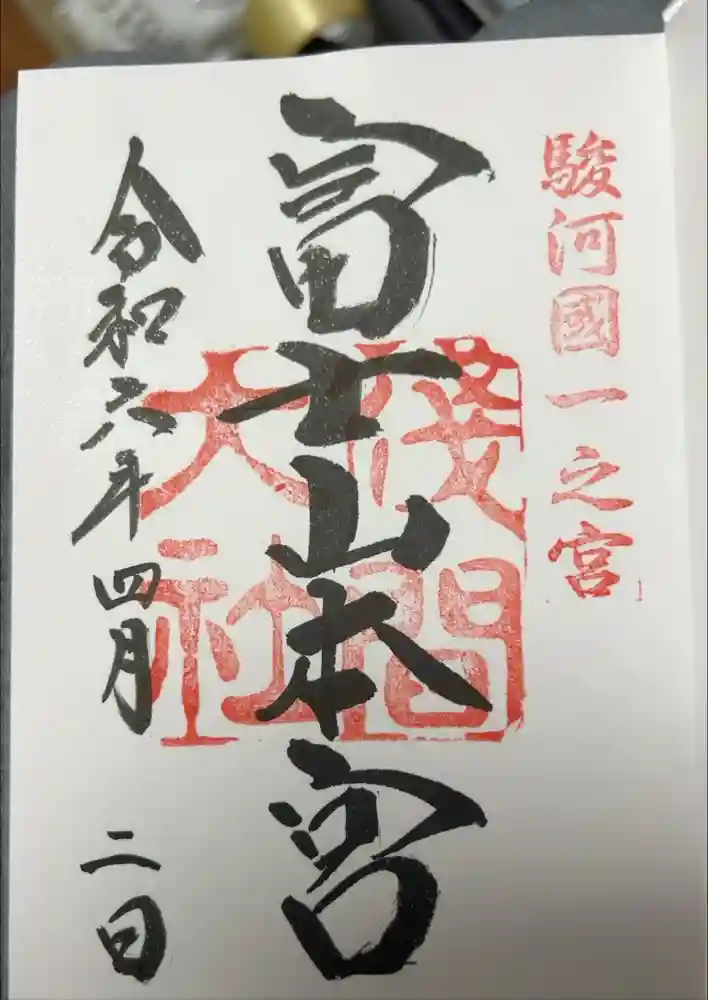 駿河國一之宮
富士山本宮
淺間大社
令和六年四月二日